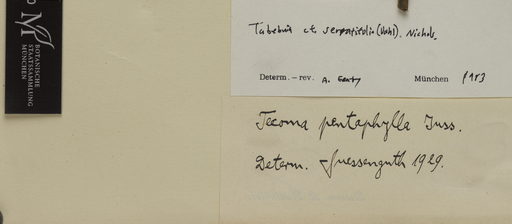 M
BOTANISCHE
STAATSSAMMLUNG
MÜNCHEN
Tabebuia cf. serratifolia (Vahl). Nichols.
Determ. – rev. A. Gentry München 1983
Tecoma pentaphylla Juss.
Determ. Suessenguth 1929.